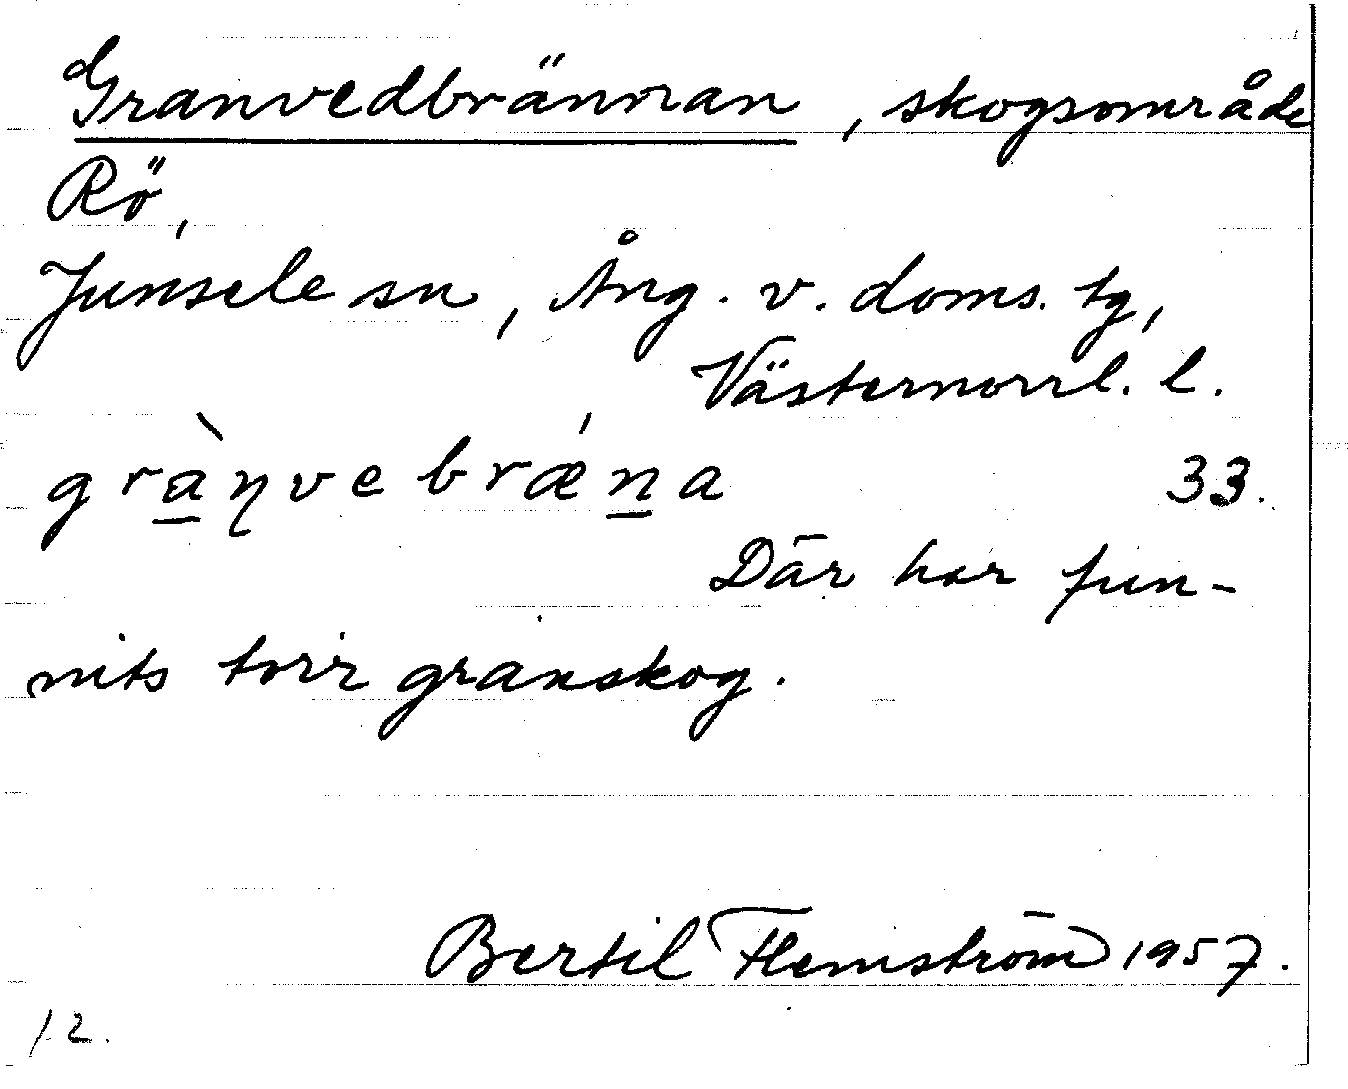 Granvedbrännan, skogsområde
Rö,
Junsele sn, Ång. v. doms. tg,
Västernorrl. l.
gràŋvebræ´na 33.
Där har fun-
nits torr granskog.
Bertil Flemström 1957.
12.